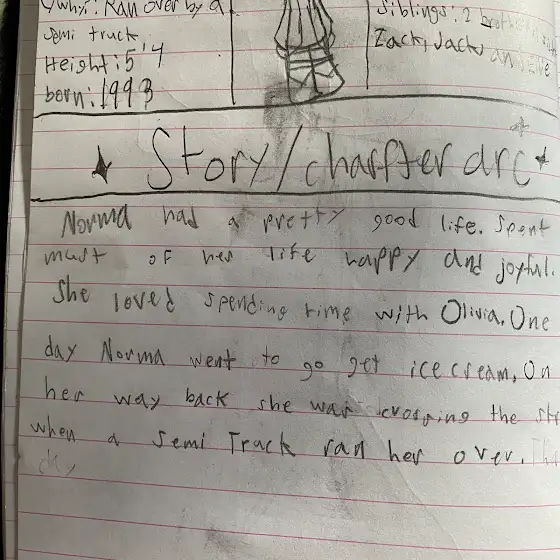 /whyi: Ran over by a
Semi truck
Height: 5'4
born: 1993
Siblings: 2
Zack, Jack, and
Story/charfter arc
Norma had a pretty good life. Spent
must of her life happy and joyful.
She loved spending time with Olivia. One
day Norma went to go get ice cream, On
her way back she was crossing the
when a Semi Track ran her over.